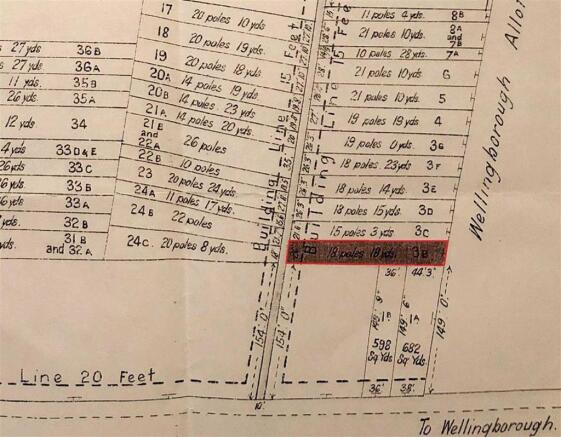 17 20 poles 10 yds
18 20 poles 19 yds.
19 20 poles 18 yds
20A 14 poles 19 yds
20B 14 poles 23 yds
21A 14 poles 20 yds.
21B and 22A 26 poles
22B 10 poles
23 20 poles 24 yds
24A 11 poles 17 yds.
24B 22 poles
24C. 20 poles 8 yds.
27 yds 36B
27 yds 36A
11 yds. 35B
26 yds. 35A
12 yds 34
4 yds 33D&E
26 yds 33C
yds 33B
yds 33A
yds. 32B
yds. 31B and 32A
Building Line 15 Feet
Building Line 15 Feet
11 poles 4 yds. 8B
21 poles 10 yds. 8A and 7B
10 poles 28 yds. 7A
21 poles 10 yds. 6
21 poles 10 yds. 5
19 poles 19 yds. 4
19 poles 0 yds. 3G
18 poles 23 yds. 3F
18 poles 14 yds. 3E
18 poles 15 yds. 3D
15 poles 3 yds. 3C
18 poles 18 yds. 3B
Wellingborough Allo
36' 44'3"
149' 6" 1A
1B
598 Sq Yds
682 Sq Yds
149' 0"
154' 0"
154' 0"
36' 38'
10'
Line 20 Feet
To Wellingborough.